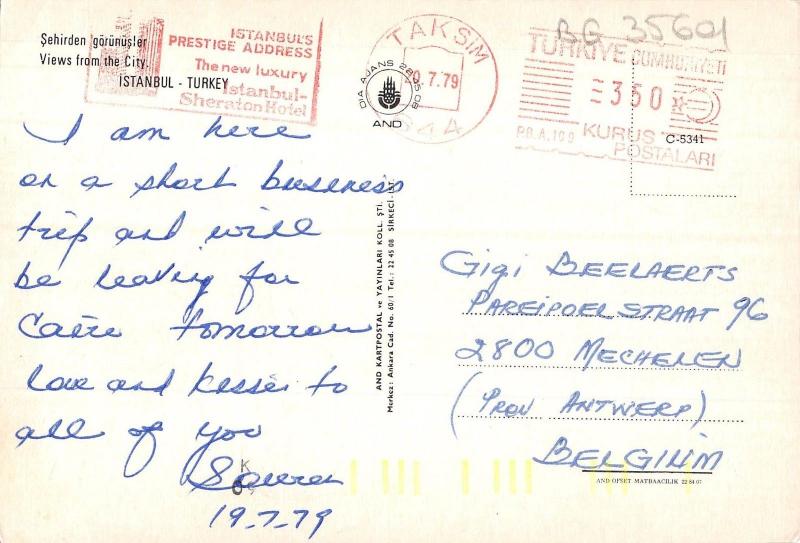 Şehirden görünüşler
Views from the City.
İSTANBUL - TURKEY
ISTANBUL'S
PRESTIGE ADDRESS
The new luxury
Istanbul-
Sheraton Hotel
TAKSİM
20.7.79
DİA AJANS 28 95 08
AND
BG 35601
TÜRKİYE CUMHURİYETİ
350
P.B.A. 199
KURUŞ
POSTALARI
C-5341
I am here
on a short business
trip and will
be leaving for
Cairo tomorrow
love and kisses to
all of you
19.7.79
AND KARTPOSTAL ve YAYINLARI KOLL. ŞTİ.
Merkez: Ankara Cad. No. 60/1 Tel.: 22 45 08 SİRKECİ-İST.
Gigi BEELAERTS
PAREIPOELSTRAAT 96
2800 MECHELEN
(PROV ANTWERP)
BELGIUM
AND OFSET MATBAACILIK 22 84 07